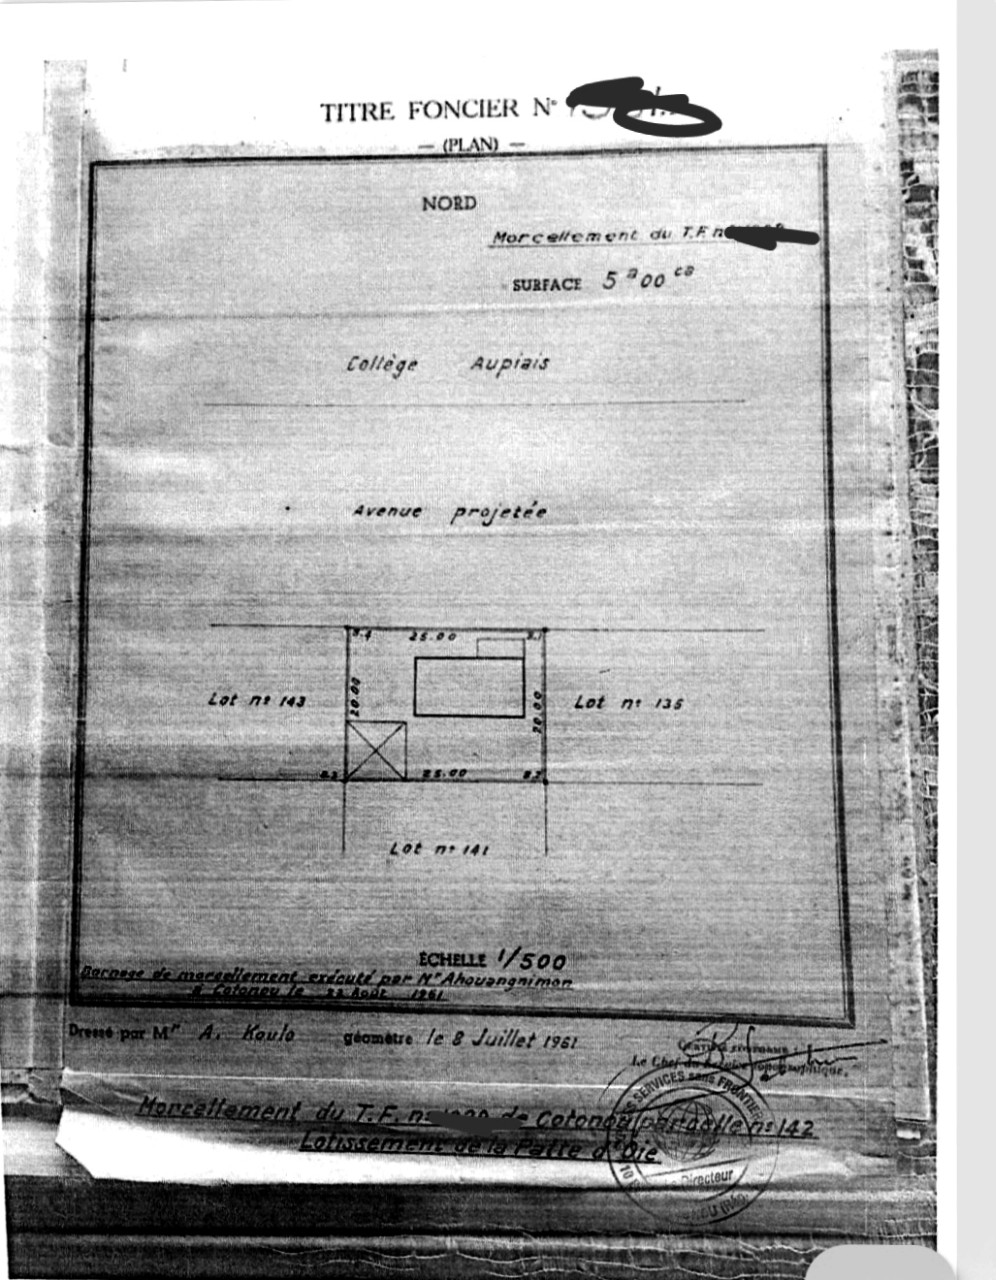 TITRE FONCIER N°
— (PLAN) —
NORD
Morcellement du T.F. n
SURFACE 5 a 00 ca
Collège Aupiais
Avenue projetée
B.4 25.00 B.1
Lot n° 143 20.00 20.00 Lot n° 135
B.3 25.00 B.2
Lot n° 141
ÉCHELLE 1/500
Bornage de morcellement exécuté par Mr Ahouangnimon
à Cotonou le 22 Août 1961
Dressé par Mr A. Koulo géomètre le 8 Juillet 1961
CERTIFIÉ CONFORME
Le Chef du Service Topographique,
SERVICES sans FRONTIÈRE
Morcellement du T.F. n° de Cotonou parcelle n° 142
Lotissement de la Patte d'Oie
Le Directeur